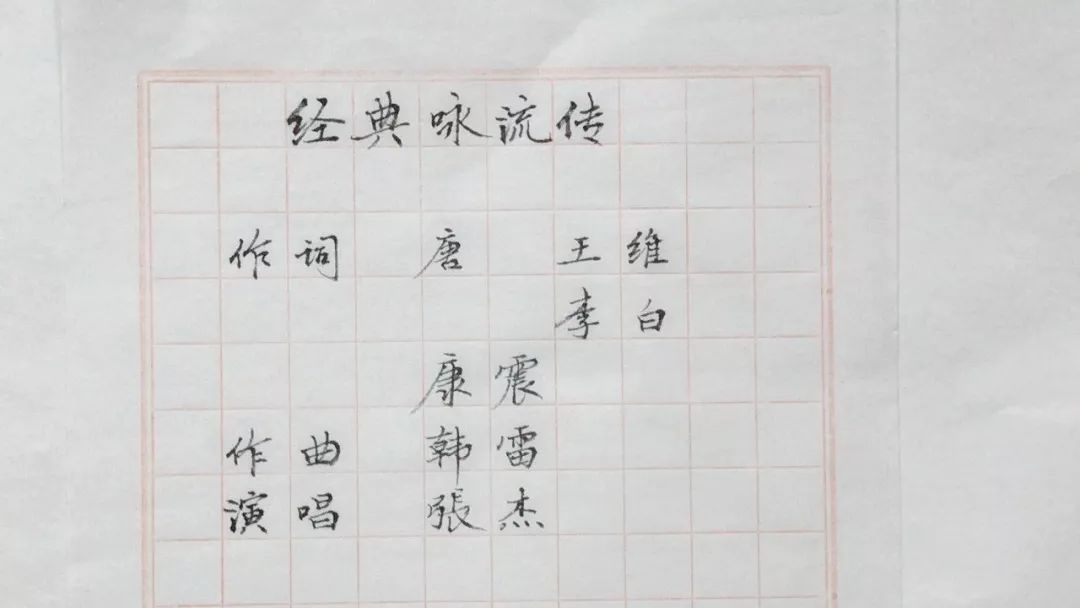 经典咏流传
作词 唐 王维
李白
康震
作曲 韩雷
演唱 張杰